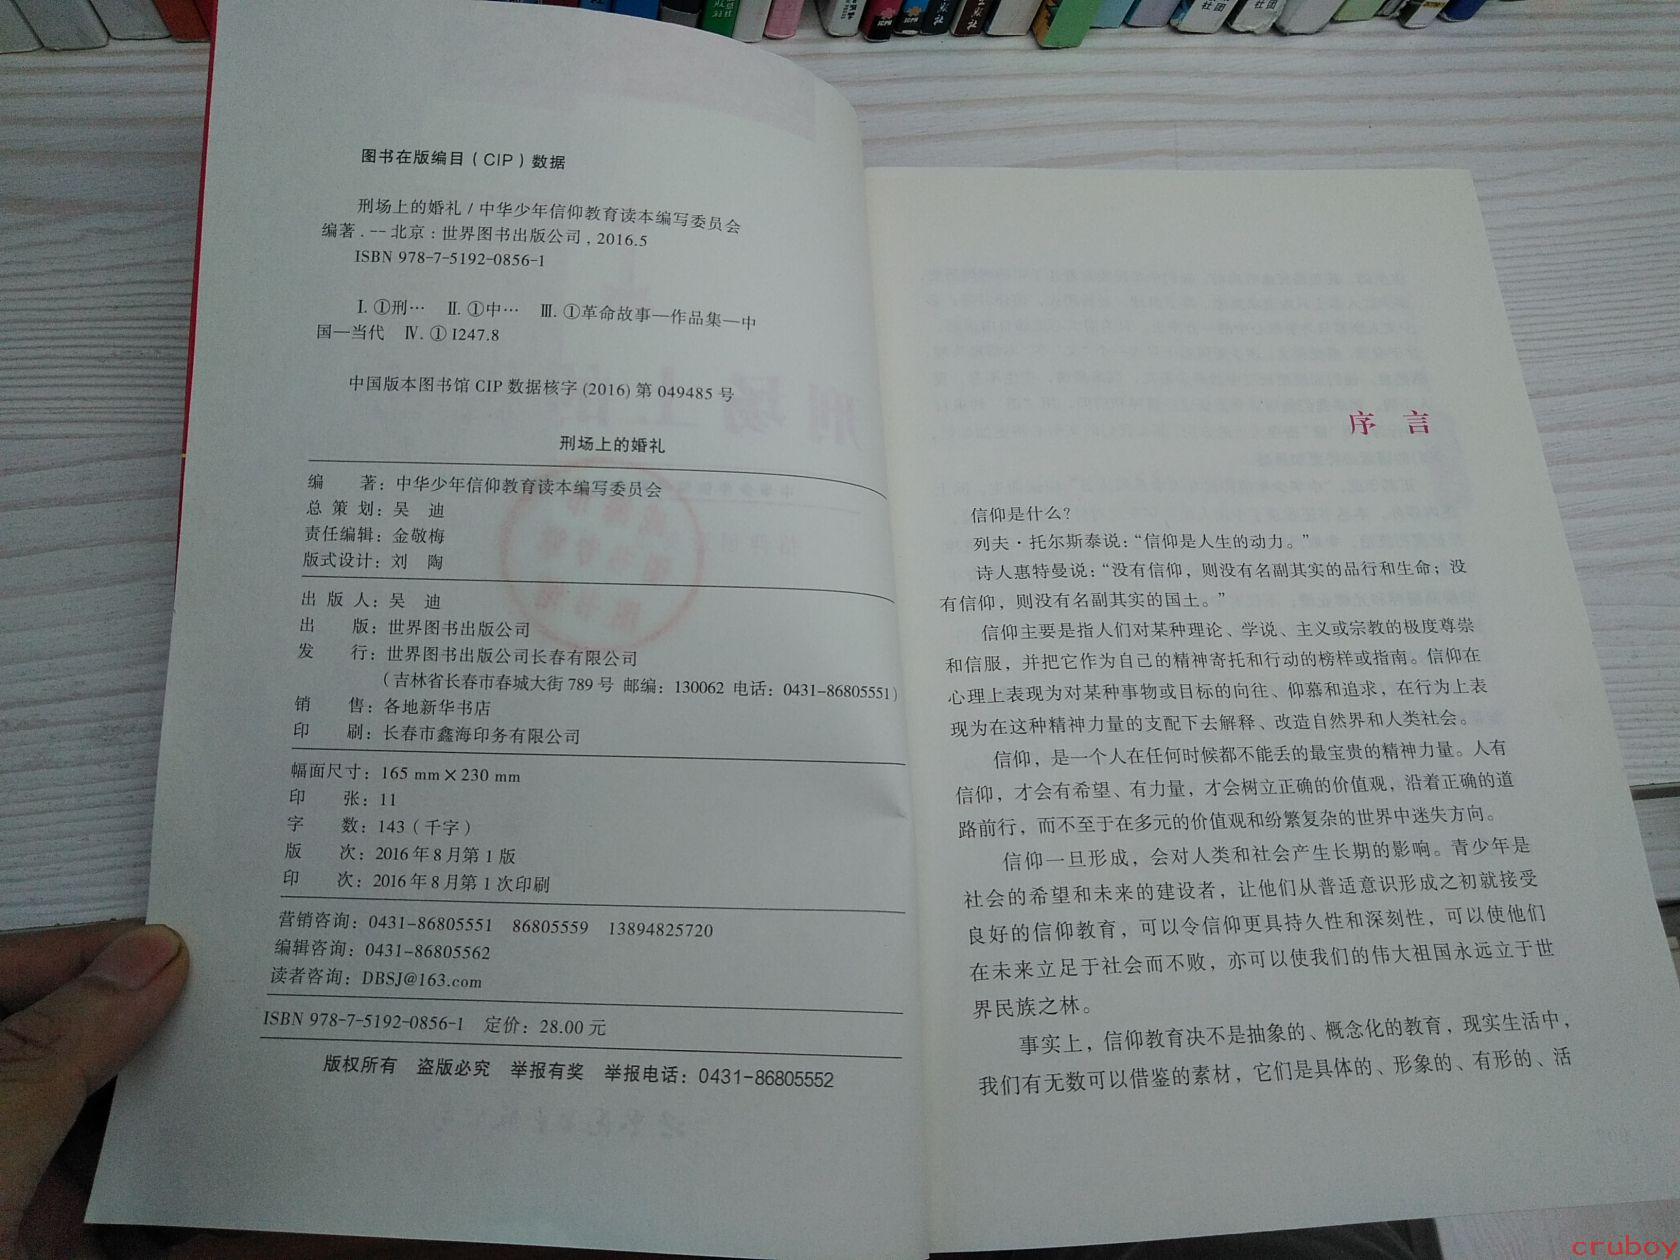 图书在版编目（CIP）数据
刑场上的婚礼 / 中华少年信仰教育读本编写委员会
编著. -- 北京：世界图书出版公司, 2016.5
ISBN 978-7-5192-0856-1
Ⅰ. ①刑… Ⅱ. ①中… Ⅲ. ①革命故事—作品集—中
国—当代 Ⅳ. ① I247.8
中国版本图书馆 CIP 数据核字 (2016) 第 049485 号
刑场上的婚礼
编 著：中华少年信仰教育读本编写委员会
总 策 划：吴 迪
责任编辑：金敬梅
版式设计：刘 陶
出 版 人：吴 迪
出 版：世界图书出版公司
发 行：世界图书出版公司长春有限公司
（吉林省长春市春城大街 789 号 邮编：130062 电话：0431-86805551）
销 售：各地新华书店
印 刷：长春市鑫海印务有限公司
幅面尺寸：165 mm × 230 mm
印 张：11
字 数：143（千字）
版 次：2016 年 8 月第 1 版
印 次：2016 年 8 月第 1 次印刷
营销咨询：0431-86805551 86805559 13894825720
编辑咨询：0431-86805562
读者咨询：DBSJ@163.com
ISBN 978-7-5192-0856-1 定价：28.00 元
版权所有 盗版必究 举报有奖 举报电话：0431-86805552
序 言
信仰是什么？
列夫·托尔斯泰说：“信仰是人生的动力。”
诗人惠特曼说：“没有信仰，则没有名副其实的品行和生命；没
有信仰，则没有名副其实的国土。”
信仰主要是指人们对某种理论、学说、主义或宗教的极度尊崇
和信服，并把它作为自己的精神寄托和行动的榜样或指南。信仰在
心理上表现为对某种事物或目标的向往、仰慕和追求，在行为上表
现为在这种精神力量的支配下去解释、改造自然界和人类社会。
信仰，是一个人在任何时候都不能丢的最宝贵的精神力量。人有
信仰，才会有希望、有力量，才会树立正确的价值观，沿着正确的道
路前行，而不至于在多元的价值观和纷繁复杂的世界中迷失方向。
信仰一旦形成，会对人类和社会产生长期的影响。青少年是
社会的希望和未来的建设者，让他们从普适意识形成之初就接受
良好的信仰教育，可以令信仰更具持久性和深刻性，可以使他们
在未来立足于社会而不败，亦可以使我们的伟大祖国永远立于世
界民族之林。
事实上，信仰教育决不是抽象的、概念化的教育，现实生活中，
我们有无数可以借鉴的素材，它们是具体的、形象的、有形的、活
cruboy